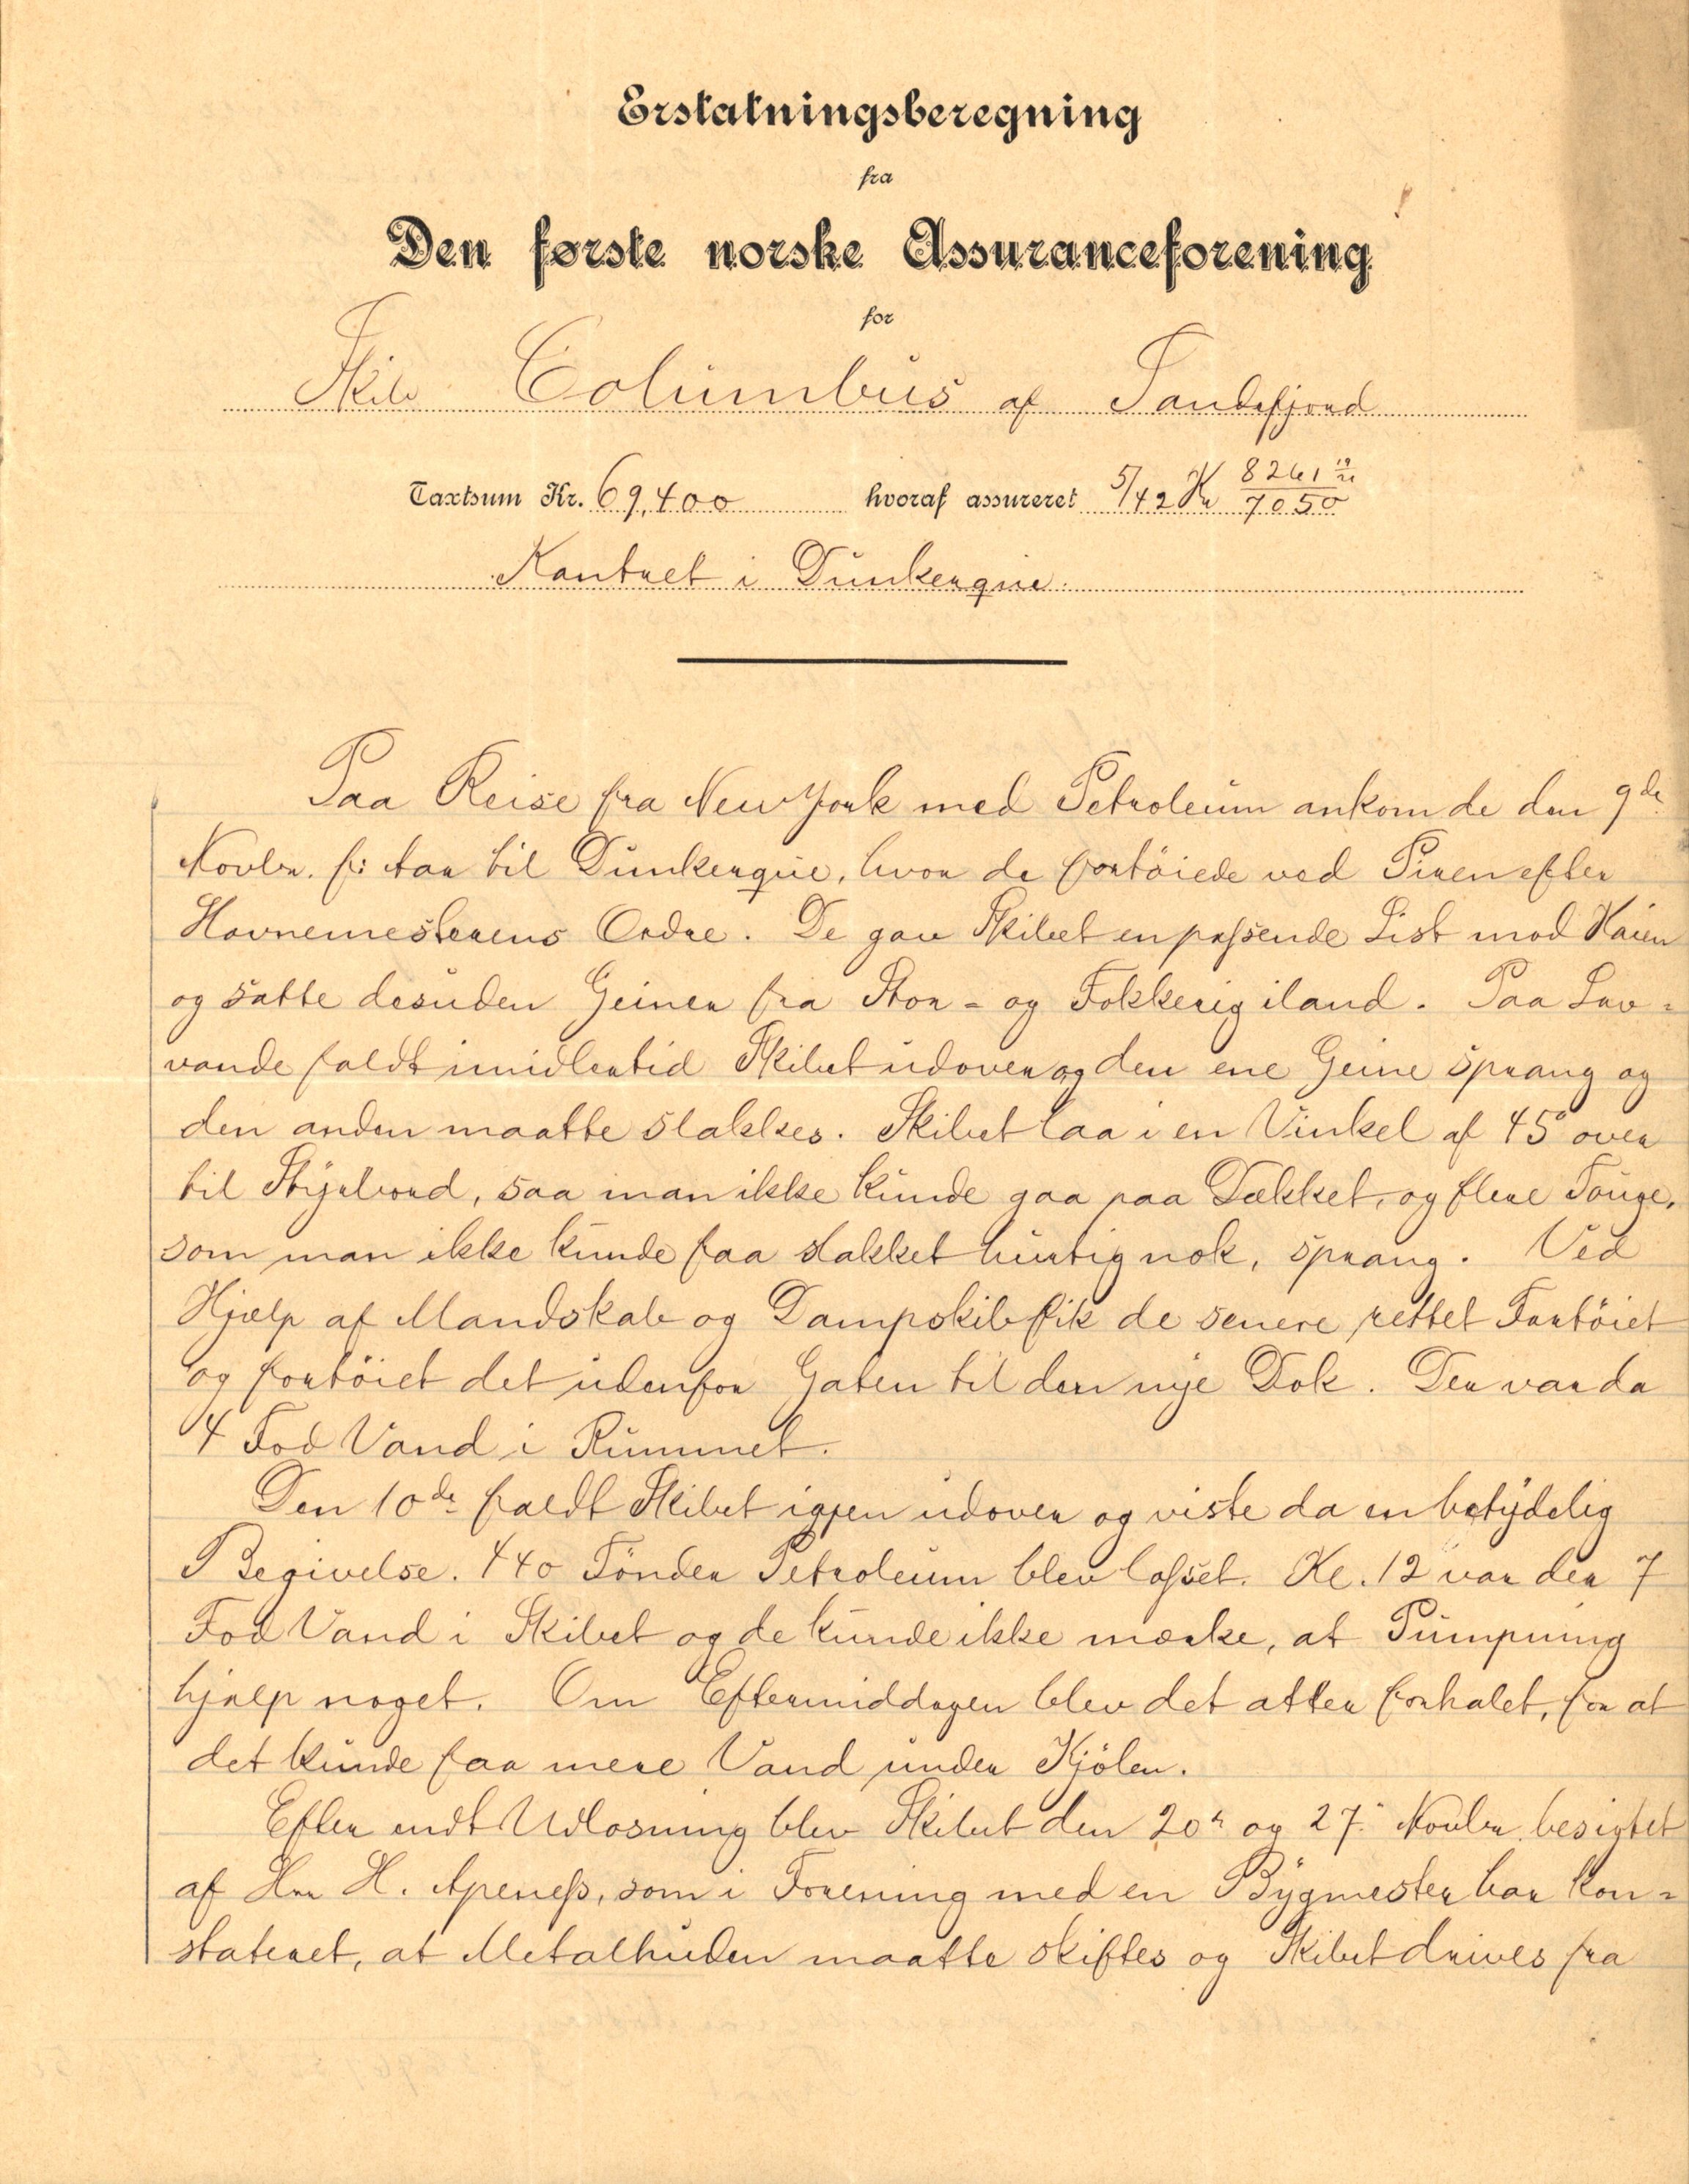 Erstatningsberegning
fra
Den første norske Assuranceforening
for
Skib Columbus af Sandefjord
Taxtsum Kr. 69,400 hvoraf assureret 5/42 Kr 8261 19/21
7050
Kantret i Dunkerque.
Paa Reise fra New York med Petroleum ankom de den 9de
Novbr. f: Aar til Dunkerque, hvor de fortöiede ved Piren efter
Havnemesterens Ordre. De gav Skibet en passende List mod Kaien
og satte desuden Geiner fra Stor- og Fokkerig iland. Paa Lav-
vande faldt imidlertid Skibet udover og den ene Geine sprang og
den anden maatte slakkes. Skibet laa i en Vinkel af 45° over
til Styrbord, saa man ikke kunde gaa paa Dækket, og flere Touge,
som man ikke kunde faa slakket hurtig nok, sprang. Ved
Hjælp af Mandskab og Dampskib fik de senere rettet Fartöiet
og fortöiet det udenfor Gaten til den nye Dok. Der var da
4 Fod Vand i Rummet.
Den 10de faldt Skibet igjen udover og viste da en betydelig
Begivelse. 440 Tönder Petroleum blev losset. Kl. 12 var der 7
Fod Vand i Skibet og de kunde ikke mærke, at Pumpning
hjalp noget. Om Eftermiddagen blev det atter forhalet, for at
det kunde faa mere Vand under Kjölen.
Efter endt Udlosning blev Skibet den 20de og 27. Novbr. besigtet
af Hrr H. Apeness, som i Forening med en Bygmester har kon-
stateret, at Metalhuden maatte skiftes og Skibet drives fra